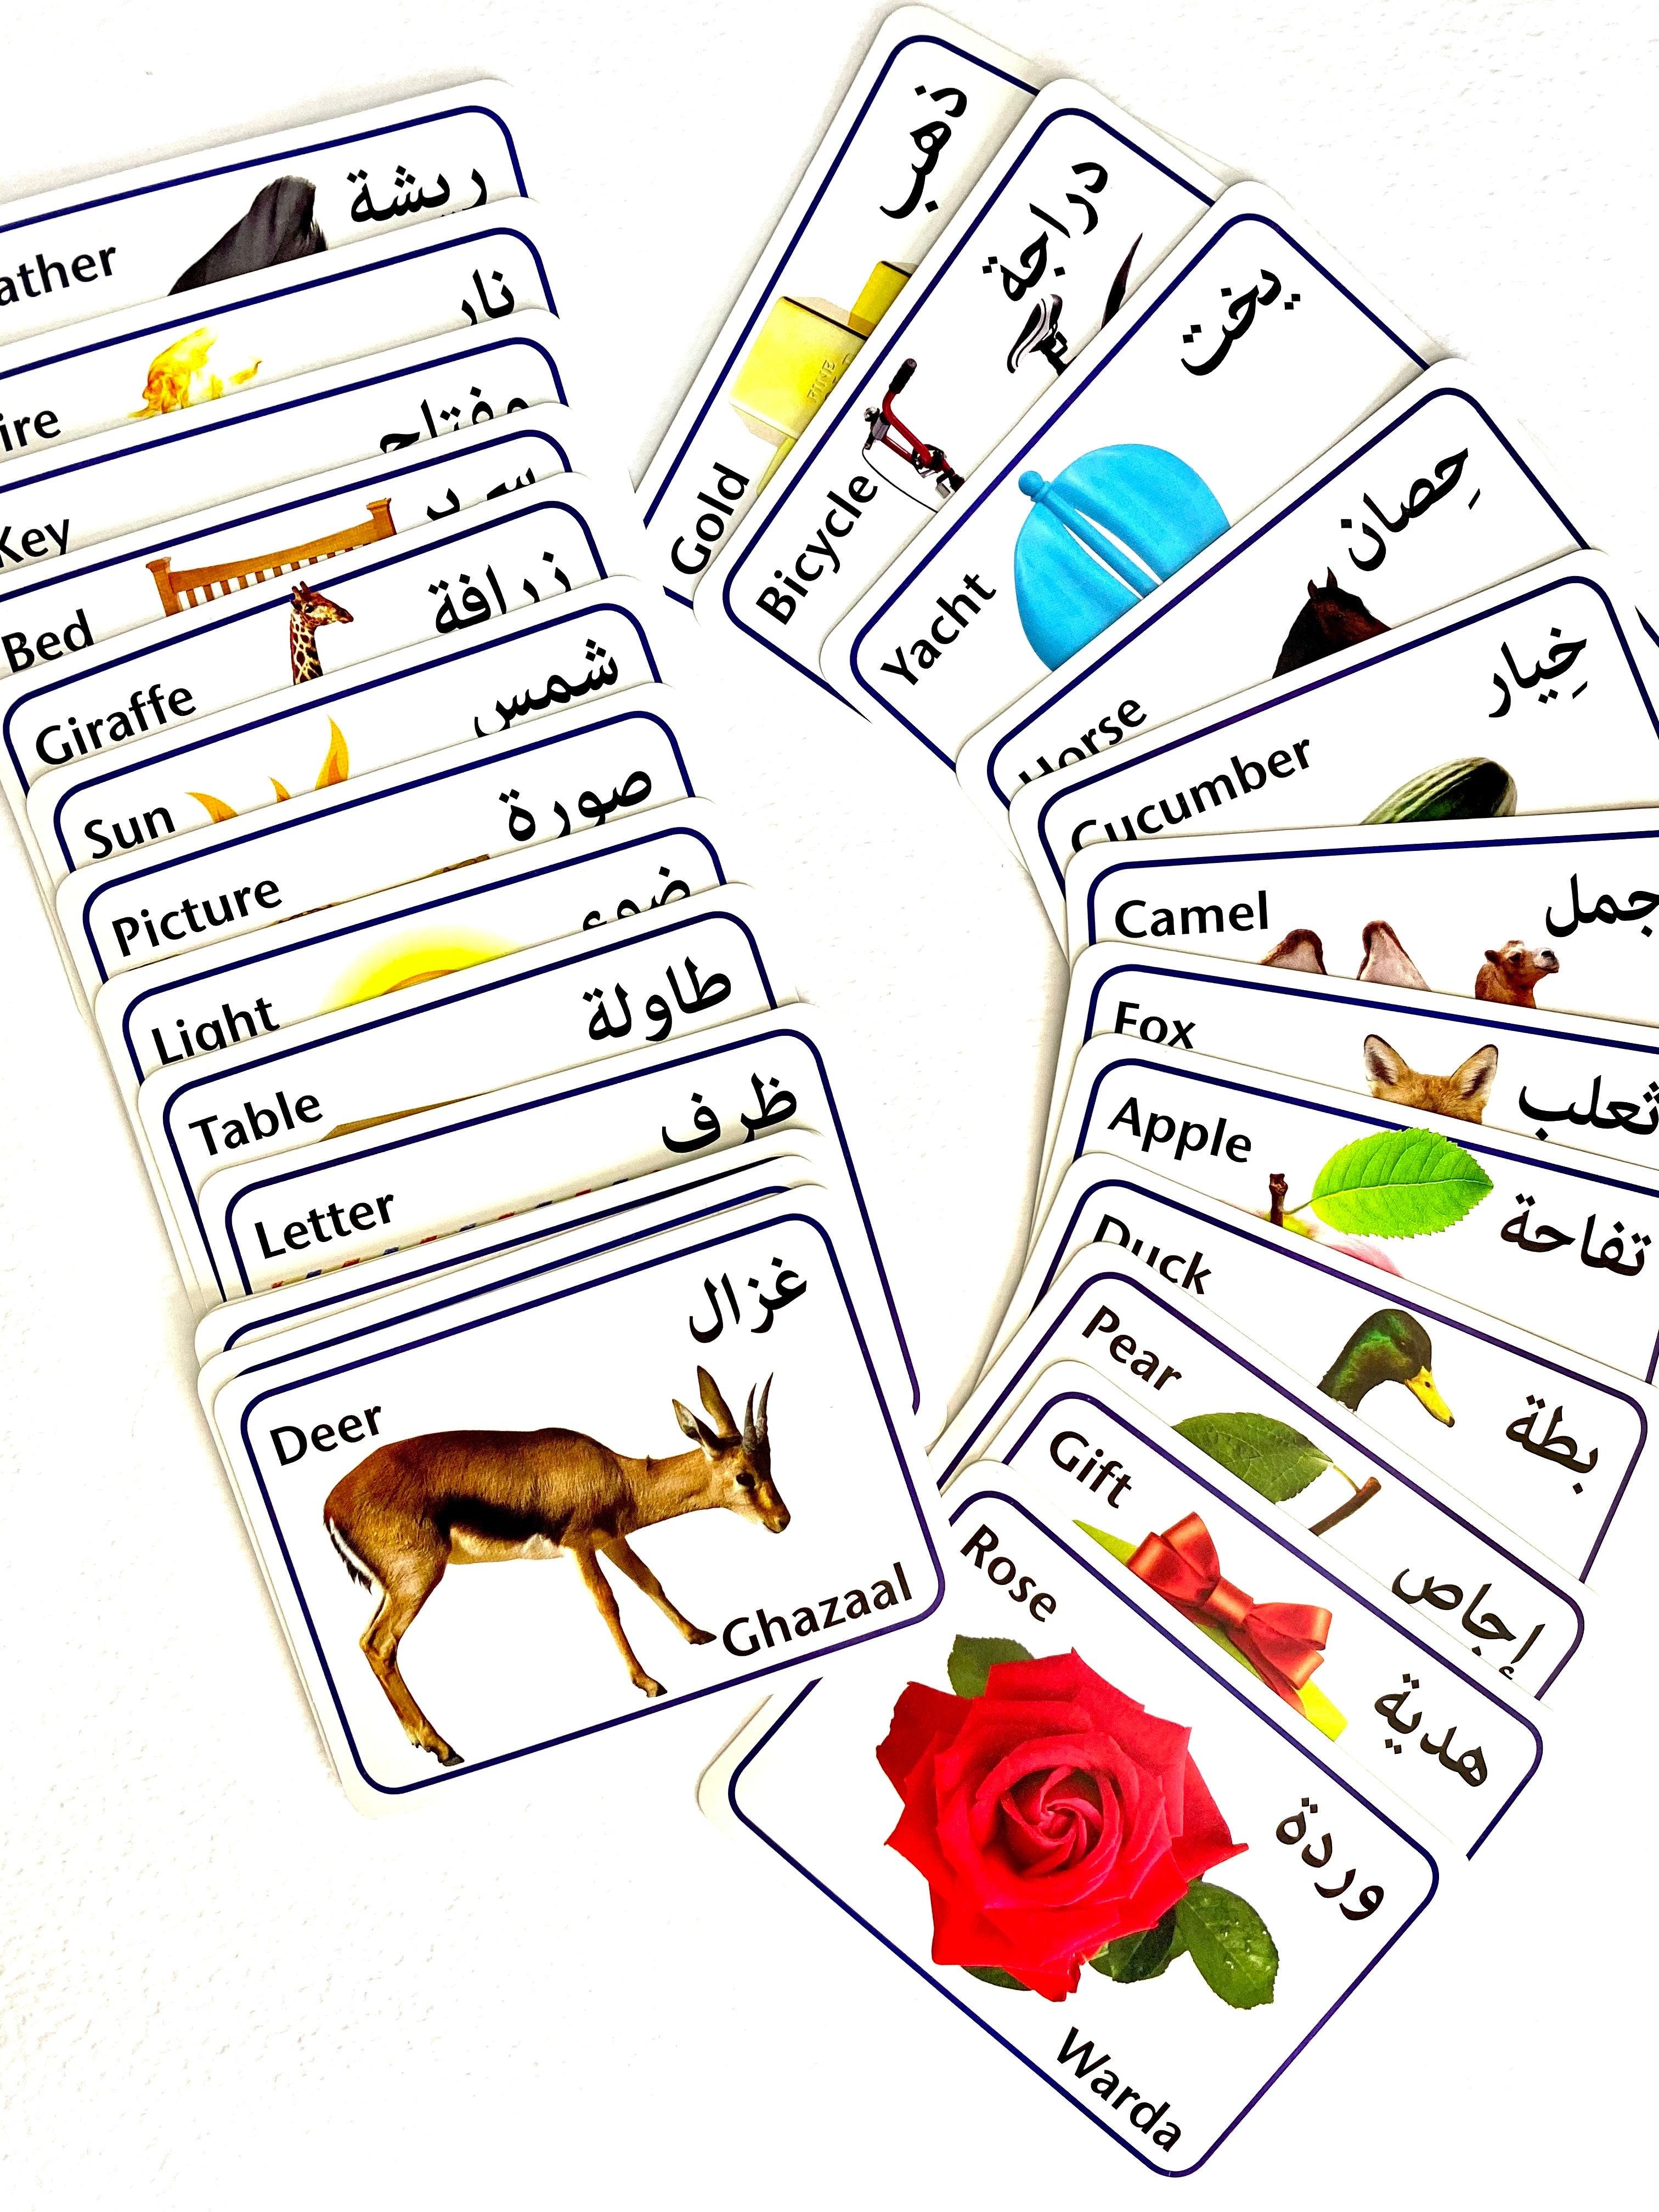 ريشة
ather
نار
ire
مفتاح
Key
سرير
Bed
زرافة
Giraffe
شمس
Sun
صورة
Picture
ضوء
Light
طاولة
Table
ظرف
Letter
غزال
Deer
Ghazaal
ذهب
Gold
FINE
دراجة
Bicycle
يخت
Yacht
حِصان
Horse
خِيار
Cucumber
جمل
Camel
Fox
ثعلب
Apple
تفاحة
Duck
بطة
Pear
إجاص
Gift
هدية
Rose
وردة
Warda